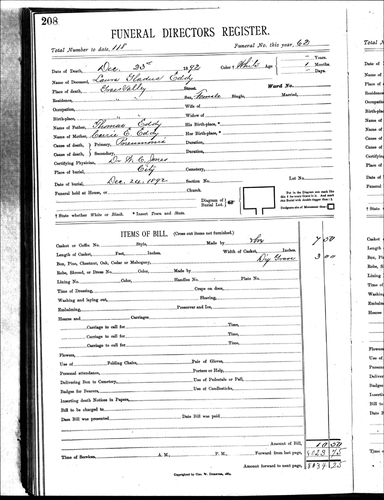 208
FUNERAL DIRECTORS REGISTER.
Total Number to date, 118 Funeral No. this year, 62
Date of Death, Dec. 23rd 1892 Color † White Age — Years
1 Months
— Days
Name of Deceased, Laura Gladus Eddy
Place of death, Street, Ward No.
Residence, " " Sex, Female Single, Married,
Occupation, Wife of
Birth-place, " " Widow of
Name of Father, Thomas Eddy His Birth-place,*
Name of Mother, Carrie E. Eddy Her Birth-place,*
Cause of death, Primary, Pneumonia Duration,
Cause of death, Secondary, Duration,
Certifying Physician, Dr. Jones
Place of burial, City Cemetery,
Date of burial, Dec. 24, 1892 Section No. Lot No.
Funeral held at House, or Church.
Diagram of Burial Lot.
† State whether White or Black. * Insert Town and State.
ITEMS OF BILL. (Cross out items not furnished.)
Casket or Coffin No. Style, Made by 7 50
Length of Casket, Feet, Inches. Width of Casket, Inches.
Box, Pine, Chestnut, Oak, Cedar or Mahogany, Dig Grave 3 00
Robe, Shroud, or Dress No. Color, Made by
Lining No. Color, Handles No. Plate No.
Time of Dressing, Crape on door,
Washing and laying out, Shaving,
Embalming, Preserver and Ice,
Hearse and Carriages.
Carriage to call for Time,
Carriage to call for Time,
Carriage to call for Time,
Carriage to call for Time,
Flowers,
Use of Folding Chairs, Pair of Gloves,
Personal attendance, Porters or Help,
Delivering Box to Cemetery, Use of Pedestals or Pall,
Badges for Bearers, Use of Candlesticks,
Inserting death Notices in Papers,
Bill to be charged to
Date Bill was presented Date Bill was paid
Amount of Bill, 10 50
Time of Services, A. M., P. M. Forward from last page,
Amount forward to next page,